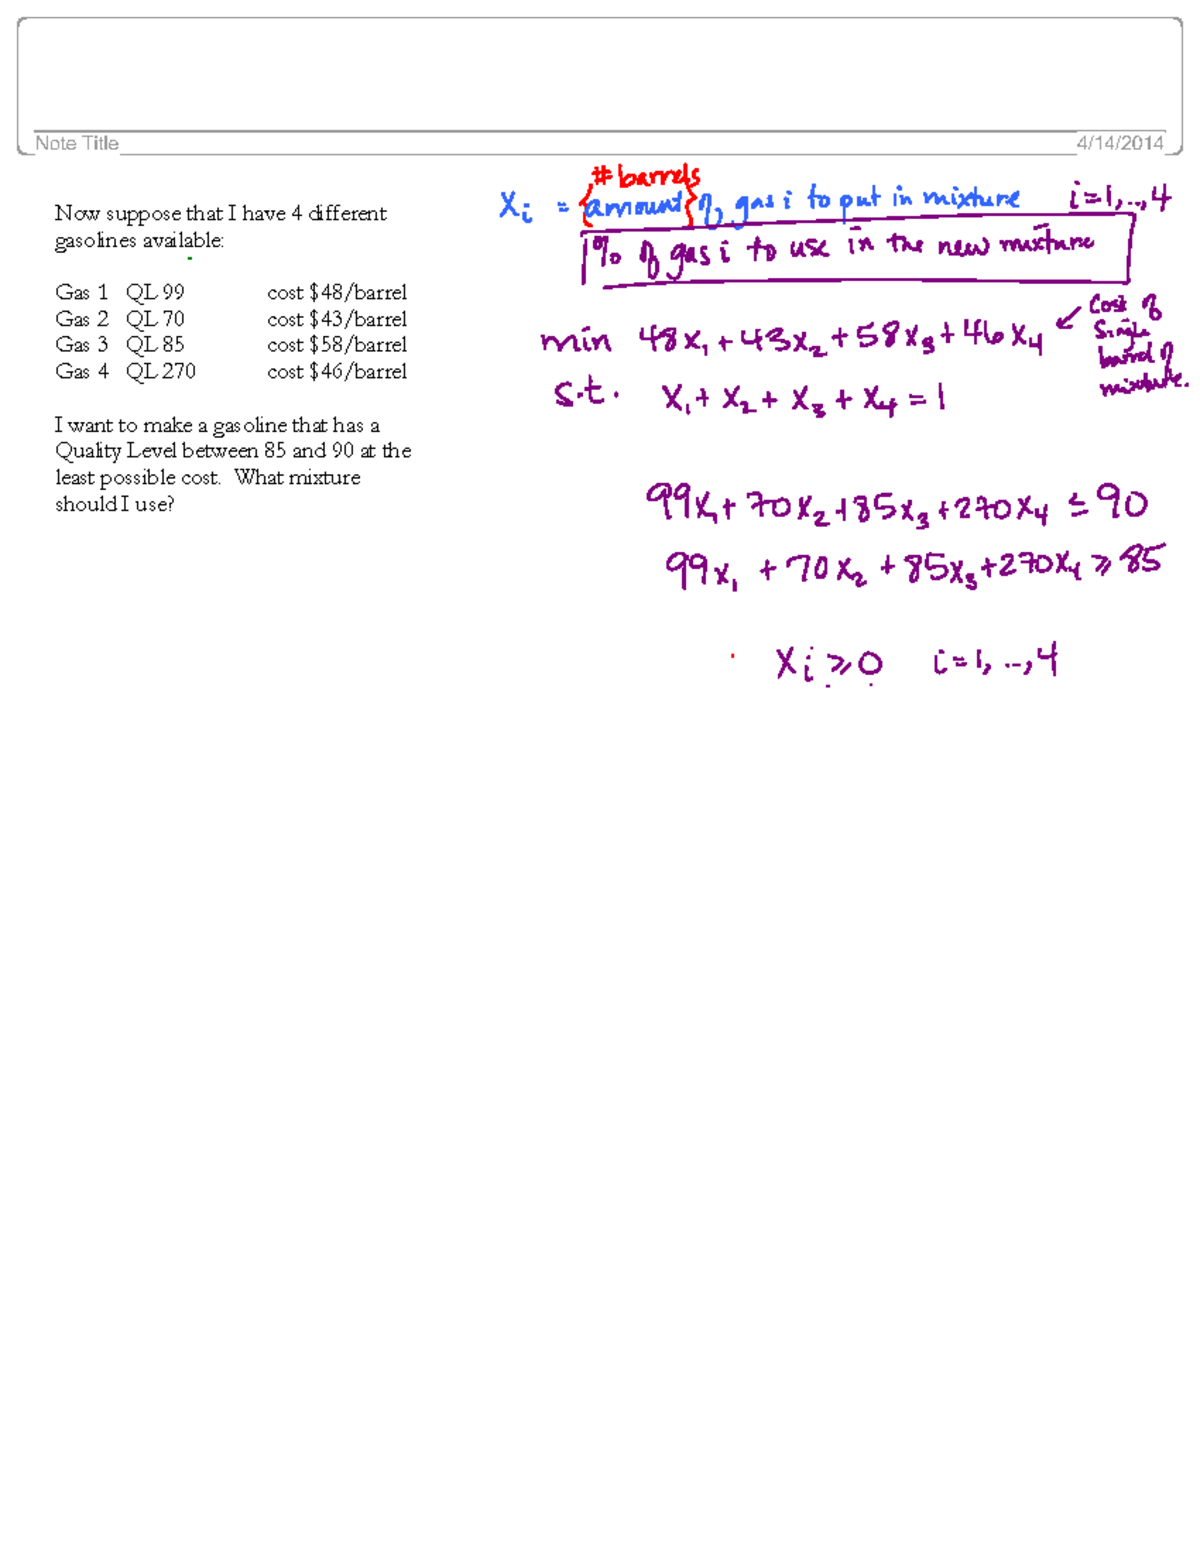 Note Title
4/14/2014
Now suppose that I have 4 different
gasolines available:
Gas 1 QL 99 cost $48/barrel
Gas 2 QL 70 cost $43/barrel
Gas 3 QL 85 cost $58/barrel
Gas 4 QL 270 cost $46/barrel
I want to make a gasoline that has a
Quality Level between 85 and 90 at the
least possible cost. What mixture
should I use?
# barrels
Xi = {amount} of gas i to put in mixture i=1,..,4
% of gas i to use in the new mixture
min 48x₁ + 43x₂ + 58x₃ + 46x₄
cost of
single
barrel of
mixture.
s.t. x₁ + x₂ + x₃ + x₄ = 1
99x₁ + 70x₂ + 85x₃ + 270x₄ ≤ 90
99x₁ + 70x₂ + 85x₃ + 270x₄ ≥ 85
xi ≥ 0 i=1,..,4